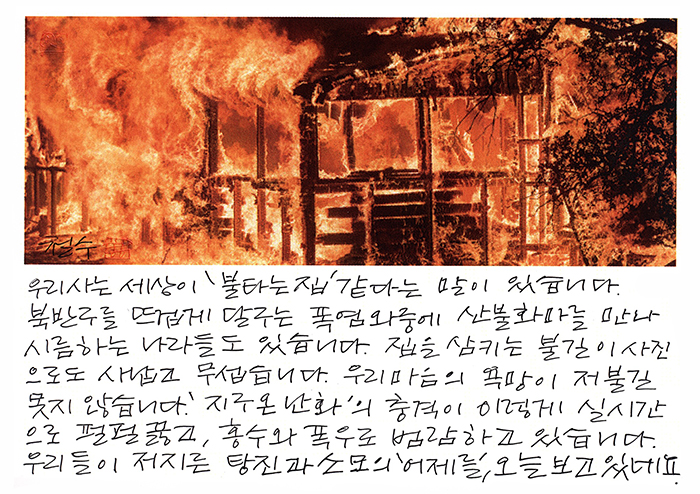 철수
우리사는 세상이 '불타는 집' 같다는 말이 있습니다.
북반구를 뜨겁게 달구는 폭염와중에 산불화마를 만나
시름하는 나라들도 있습니다. 집을 삼키는 불길이 사진
으로도 사납고 무섭습니다. 우리마음의 욕망이 저불길
못지 않습니다. '지구온난화'의 충격이 이렇게 실시간
으로 펄펄끓고, 홍수와 폭우로 범람하고 있습니다.
우리들이 저지른 탕진과 소모의 '어제를', 오늘 보고 있네요.